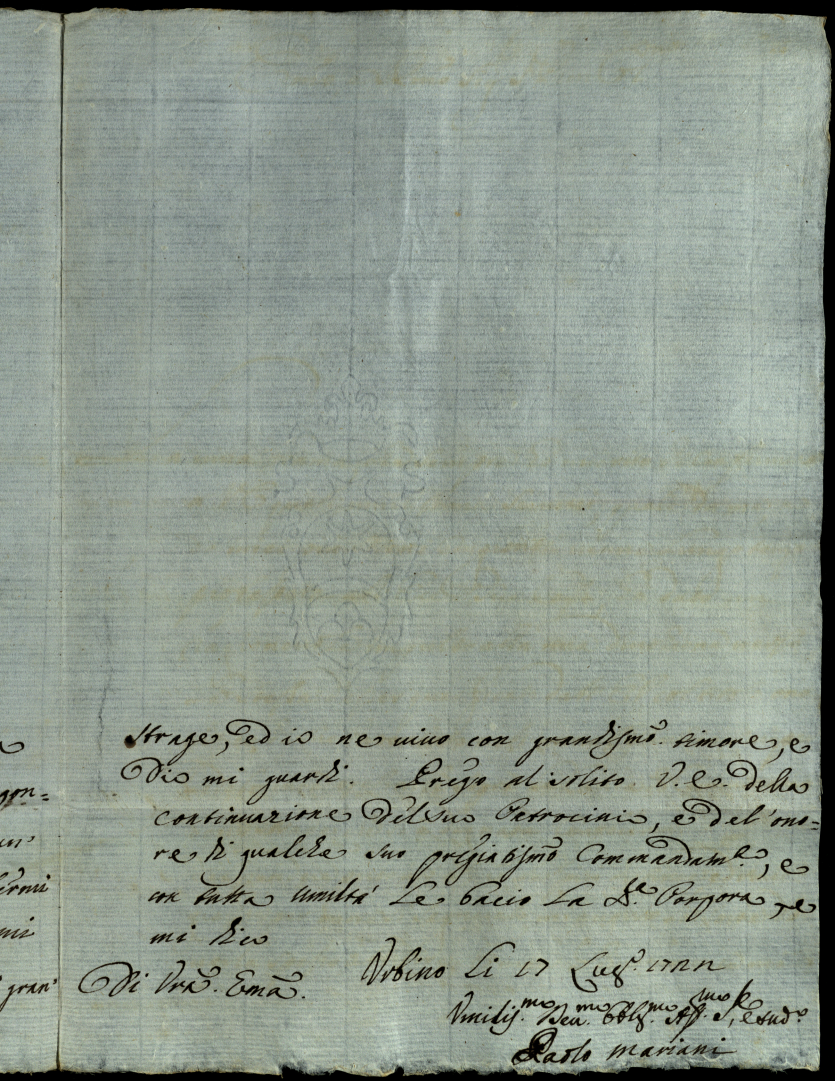 strage, ed io ne uiuo con grandissmo. timore, e
Dio mi guardi. Prego al solito V. E. della
continuazione del suo Patrocinio, e del'ono=
re di qualche suo pregiatissmo Commandamto., e
con tutta umiltà Le bacio La Sa. Porpora, e
mi dico
Di Vra. Ema. Urbino Li 17 Lugo. 1722
Umiliss.mo Deu.mo Obblg.mo Aff.mo Se, e sudo
Paolo Mariani
gon=
un'
mi
gran'